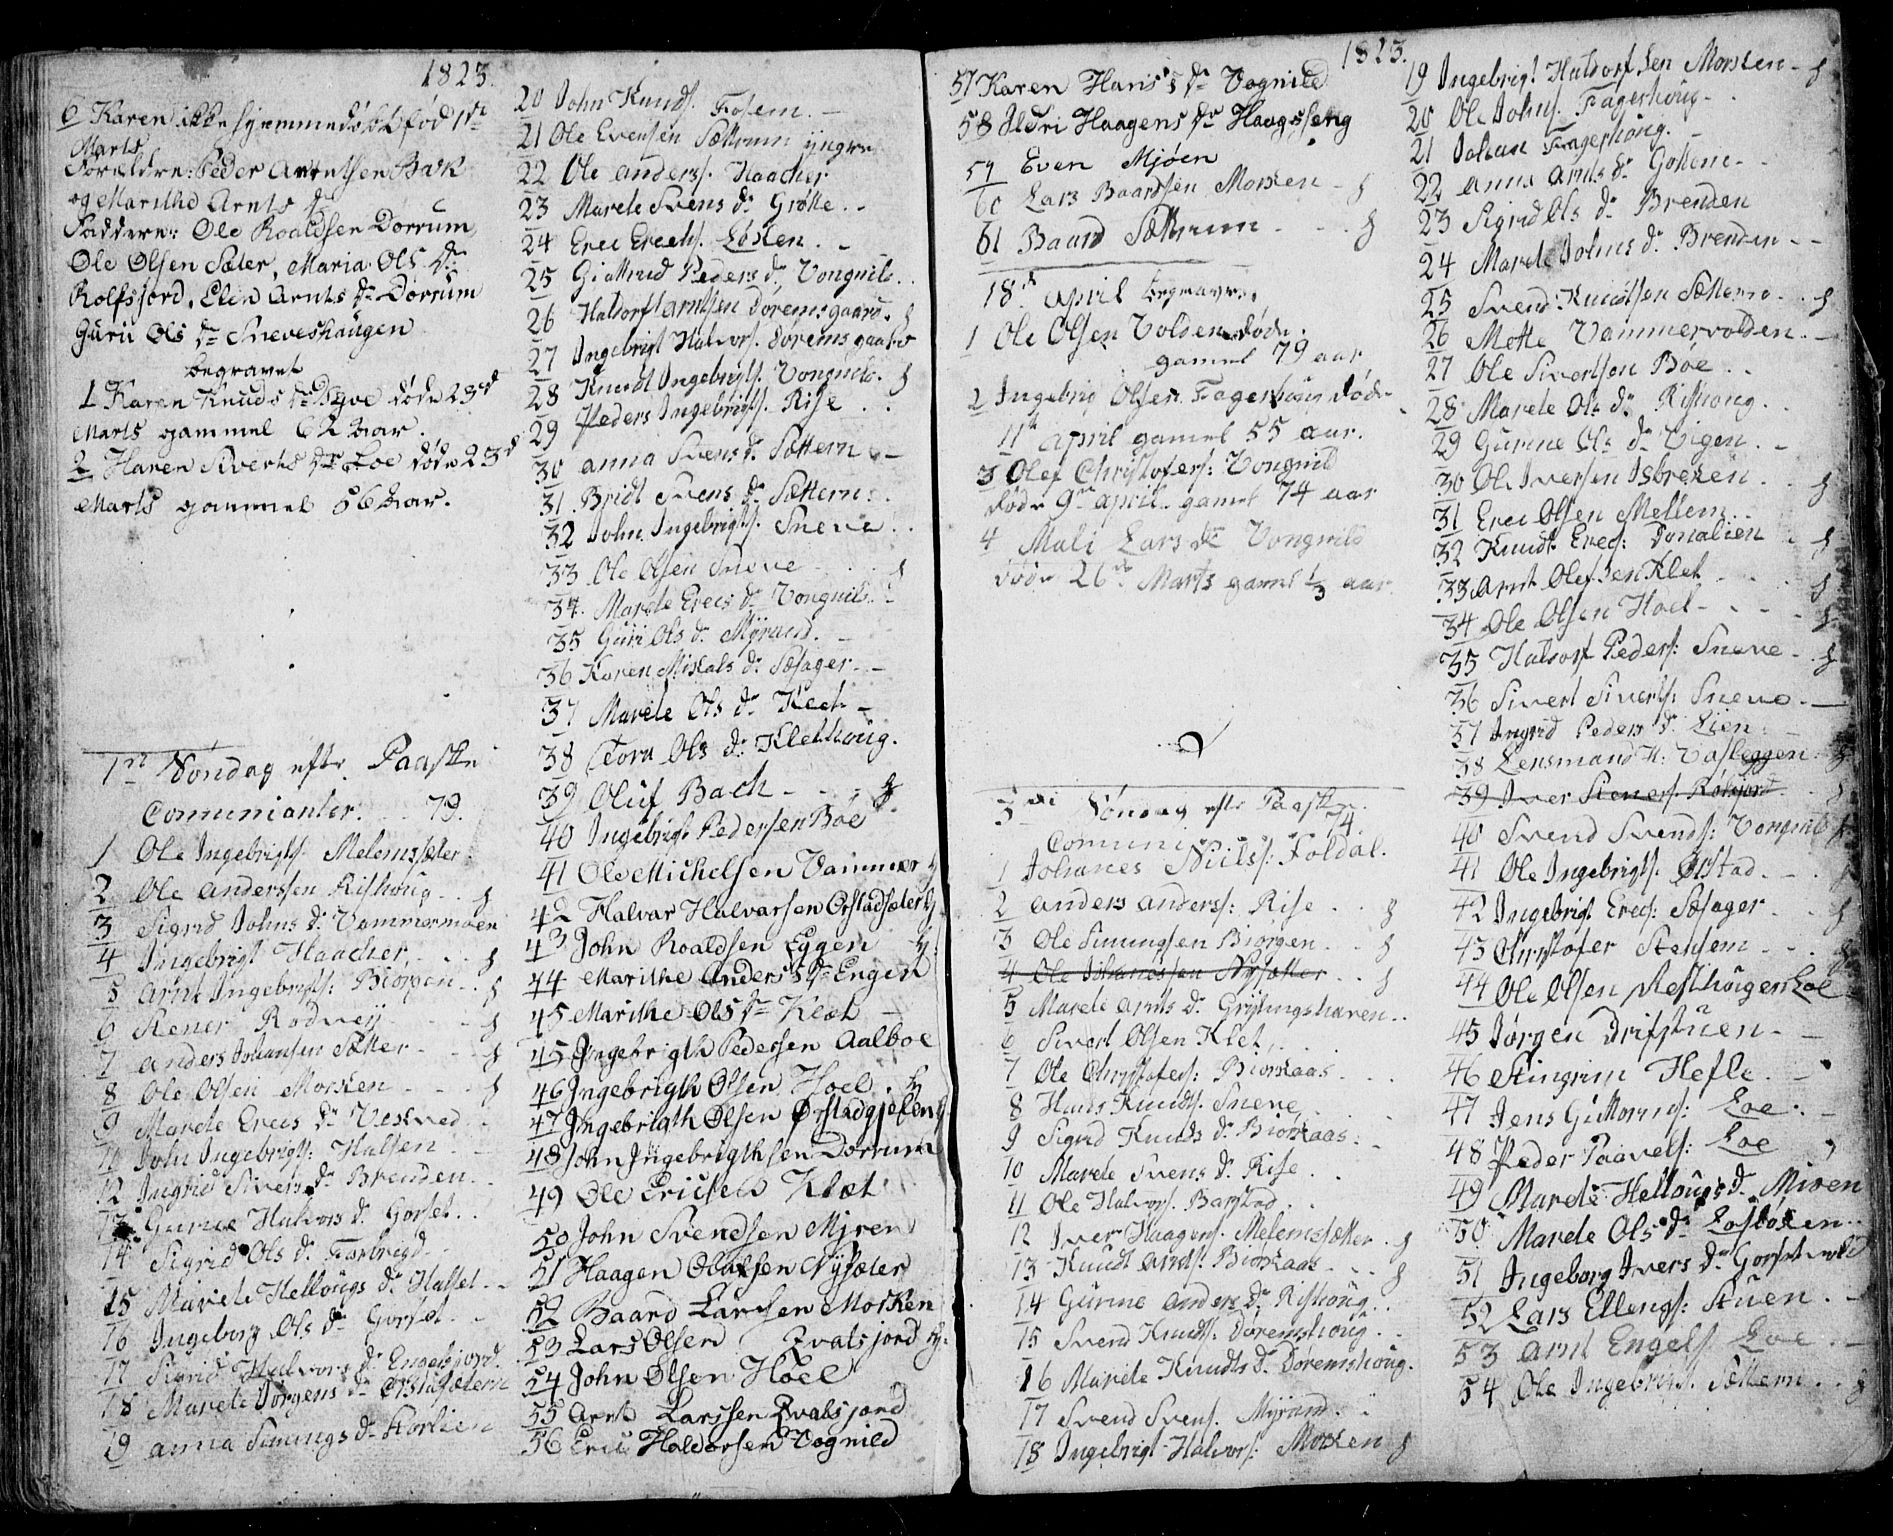 1823.
6 Karen ikke hjemmedøbt fød 1st
Marts
Forældre: Peder Arntsen Bak
og Marithe Arnts dr
Faddere: Ole Roaldsen Dørrum,
Ole Olsen Sæter, Maria Ols dr
Rolfsjord, Elen Arnts dr Dørrum
Guru Ols dr Sneveshaugen
begravet
1 Karen Knuds dr døde 23d
Marts gammel 62 aar.
2 Haren Siverts dr Loe døde 23d
Marts gammel 56 aar.
1ste Søndag efter Paaske
Comunianter. . . 79.
1 Ole Ingebrigts. Melemsæter.
2 Ole Anderssen Rishoug . . ɟ
3 Sigrid Johns dr Vammermoen
4 Ingebrigt Haacher . . .
5 Arnt Ingebrigts: Biørgen . .
6 Stener Rodvey
7 Anders Johansen Sætter . . .
8 Ole Olsen Morken . . .
9 Marete Erecs dr Veskved .
10 John Ingebrigts: Halsen . .
12 Ingrid Sivers dr Brenden . .
13 Gurine Halvors dr Gorset . .
14 Sigrid Ols dr Farbregd
15 Mariete Hellougs dr Halset . .
16 Ingeborg Ols dr Gorset . .
17 Sigrid Halvors dr Engelsjord.
18 Marete Jørgens dr Ørstadsætern
19 Anna Simings dr Storlien
20 John Knuds. Fosem. —
21 Ole Evensen Sættrum yngre
22 Ole Anderss. Haacher
23 Marete Svens dr Grøtte . .
24 Erec Erechs. Løkken . .
25 Giertrud Peders dr Vongnild . .
26 Haldorf Arntsen Doremsgaard.
27 Ingebrigt Halvors. Doremsgaard
28 Knudt Ingebrigts. Vongnild.
29 Peders Ingebrigts. Rise . .
30 Anna Svens dr Sættern —
31. Bridt Svens dr Sættern . .
32 John Ingebrigts. Sneve . .
33 Ole Olsen Sneve — . .
34. Marete Erecs dr Vongnild . .
35 Guri Ols dr Myrand. —
36 Karen Mikals dr Sæsager . —
37 Marete Ols dr Kleet —
38 Tora Ols dr Klethoug.
39 Oluf Bach . . .
40 Ingebrigt Pedersen Boe
41 Ole Michelsen Vammer
42 Halvar Halvarsen Ørstadsæter
43 John Roaldsen Eggen
44 Marithe Anders dr Engen
45 Marithe Ols dr Klæt —
45 Ingebrigth Pedersen Aalboe
46 Ingebrigth Olsen Hoel .
47 Ingebrigth Olsen Ørstadgjelen
48 John Ingebrigthsen Dorrum
49 Ole Ericsen Klæt
50 John Svendsen Myren
51 Haagen Olafsen Nysæter
52 Baard Larssen Morken
53 Lars Olsen Qvalsjord
54 John Olsen Hoel
55 Arnt Larssen Qvalsjord
56 Eric Haldorsen Vognild
1823.
57 Karen Hans's dr Vognild
58 Ildri Haagens dr Haagsseng
59 Even Mjøen
60 Lars Baardsen Morken —
61 Baard Sættrum . . .
18d April begravne,
1 Ole Olsen Volden døde.
gamel 79 aar
2 Ingebrig Olsen Fagerhoug døde
11te April gamel 55 aar.
3 Olef Christofers: Vongnild
døde 9de april. gamel 74 aar
4 Mali Lars dr Vongnild
døde 26de Marts gamel 1/3 aar
3die Søndag efter Paaske.
Comuni 74.
1 Johanes Niils: Foldal.
2 Anders Anderss: Rise . .
3 Ole Simingsen Biørgen . . .
4 Ole Johanessen Nysætter . .
5 Marete Arnts dr Gryfingshaven . .
6 Sivert Olsen Klet . .
7 Ole Christofers: Biørkaas . . .
8 Hans Knudts. Sneve . .
9 Sigrid Knuds dr Biørkaas . .
10 Marete Svens dr Rise . .
11 Ole Halvors. Barstad . .
12 Iver Haagens. Melemsætter .
13 Knudt Arnts. Biørkaas . . .
14 Gurine Anders dr Rishoug . .
15 Svend Knudts: Doremshoug . .
16 Marete Knudts dr Doremshoug.
17 Svend Svens. Myrand. . .
18 Ingebrigt Halvors: Morken
19 Ingebrigt Haldorsen Morken —
20 Ole Johns. Fagerhoug . .
21 Johan Fagerhoug. —
22 Anne Arnts dr Gottem . .
23 Sigrid Ols dr Brenden
24 Marete Johns dr Brenden . .
25 Svend: Knudtsen Sættern . .
26 Mette Vammervolden . —
27 Ole Sivertsen Boe . .
28 Marete Ols dr Rishoug . .
29 Gurine Ols dr Vigen . —
30 Ole Iversen Isbreken . .
31 Erec Olsen Mellem . .
32 Knudt Erecs: Donalien . .
33 Arnt Olefsen Klet . . .
34 Ole Olsen Hoel . . .
35 Haldorf Peders: Sneve . .
36 Sivert Siverts: Sneve . —
37 Ingrid Peders dr Lien . —
38 Lensmand H: Vasleggen
39 Iver Steners: Rotsjord
40 Svend Svends: Vongnild
41 Ole Ingebrigts. Ørstad . . .
42 Ingebrigt Erecs: Sæsager . .
43 Christofer Stensem . . .
44 Ole Olsen Resthougen Loe
45 Jørgen Drifstuen —
46 Stingrim Hefle . —
47 Jens Guttorms: Loe . —
48 Peder Paavels: Loe
49 Marete Hellougs dr Mioen
50 Marete Ols dr Løsloken . .
51 Ingeborg Ivers dr Gorsetvold
52 Lars Ellengs: Stuen . —
53 Arnt Engels Loe . —
54 Ole Ingebrigts. Sættern . .